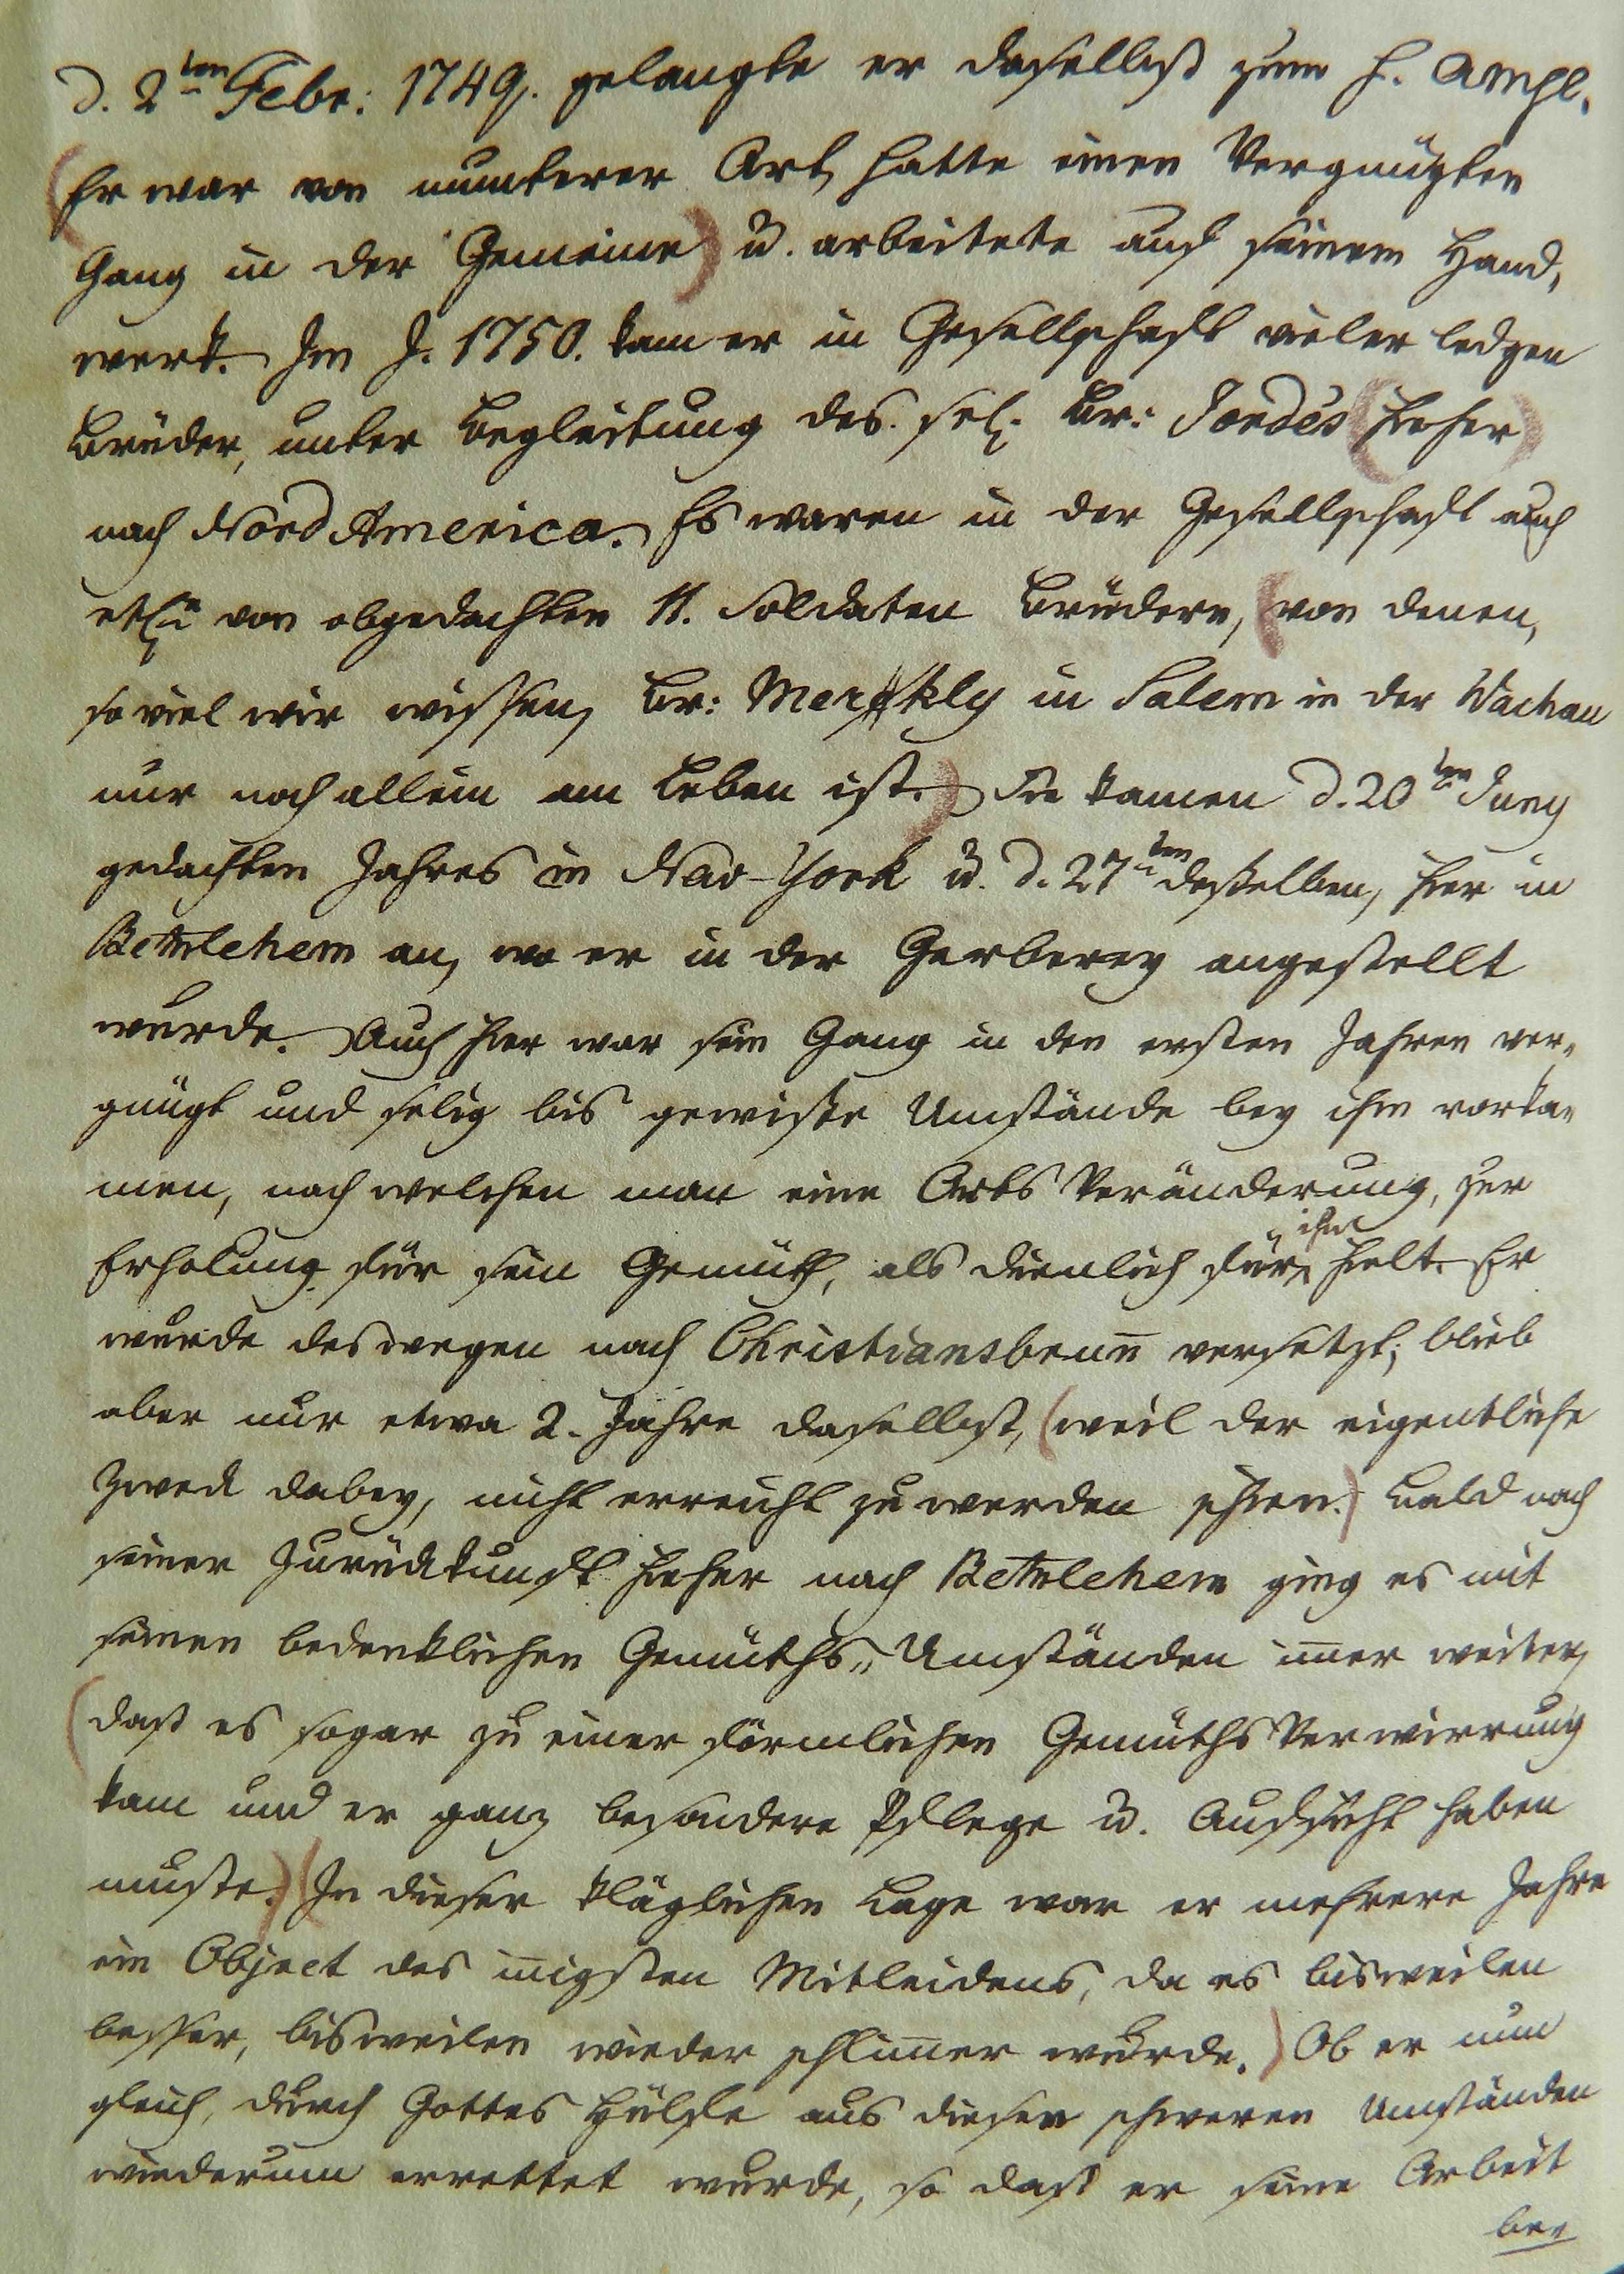 d. 2ten Febr: 1749. gelangte er daselbst zum h. Abendm.
(Er war von munterer Art, hatte einen Vergnügten
Gang in der Gemeine) u. arbeitete auf seinem Hand,
werk. Im J. 1750. kam er in Gesellschaft vieler ledgen
Brüder, unter Begleitung des sel. Br: Jorde's (hieher)
nach Nord America. Es waren in der Gesellschaft auch
etl. von obgedachten 11. Soldaten Brüdern, (von denen,
so viel wir wissen, Br: Merkly in Salem in der Wachau
nur noch allein am Leben ist.) Sie kamen d. 20ten Juny
gedachten Jahres in Neu-York u. d. 27ten desselben, hier in
Bethlehem an, wo er in der Gerberey angestellt
wurde. Auch hier war sein Gang in den ersten Jahren ver„
gnügt und selig bis gewisse Umstände bey ihm vorka„
men, nach welchen man eine Orts Veränderung, zur
Erholung für sein Gemüth, als dienlich für ihn hielt. Er
wurde deswegen nach Christiansbrun̄ versetzt; blieb
aber nur etwa 2. Jahre daselbst, (weil der eigentliche
Zweck dabey, nicht erreicht zu werden schien.) Bald nach
seiner Zurückkunft hieher nach Bethlehem ging es mit
seinen bedenklichen Gemüths„ Umständen im̄er weiter,
(daß es sogar zu einer förmlichen Gemüths Verwirrung
kam und er ganz besondere Pflege u. Aufsicht haben
muste.) (In dieser kläglichen Lage war er mehrere Jahre
ein Object des in̄igsten Mitleidens, da es bisweilen
besser, bisweilen wieder schlim̄er wurde.) Ob er nun
gleich, durch Gottes Hülfe aus diesen schweren Umständen
wiederum errettet wurde, so daß er seine Arbeit
be„